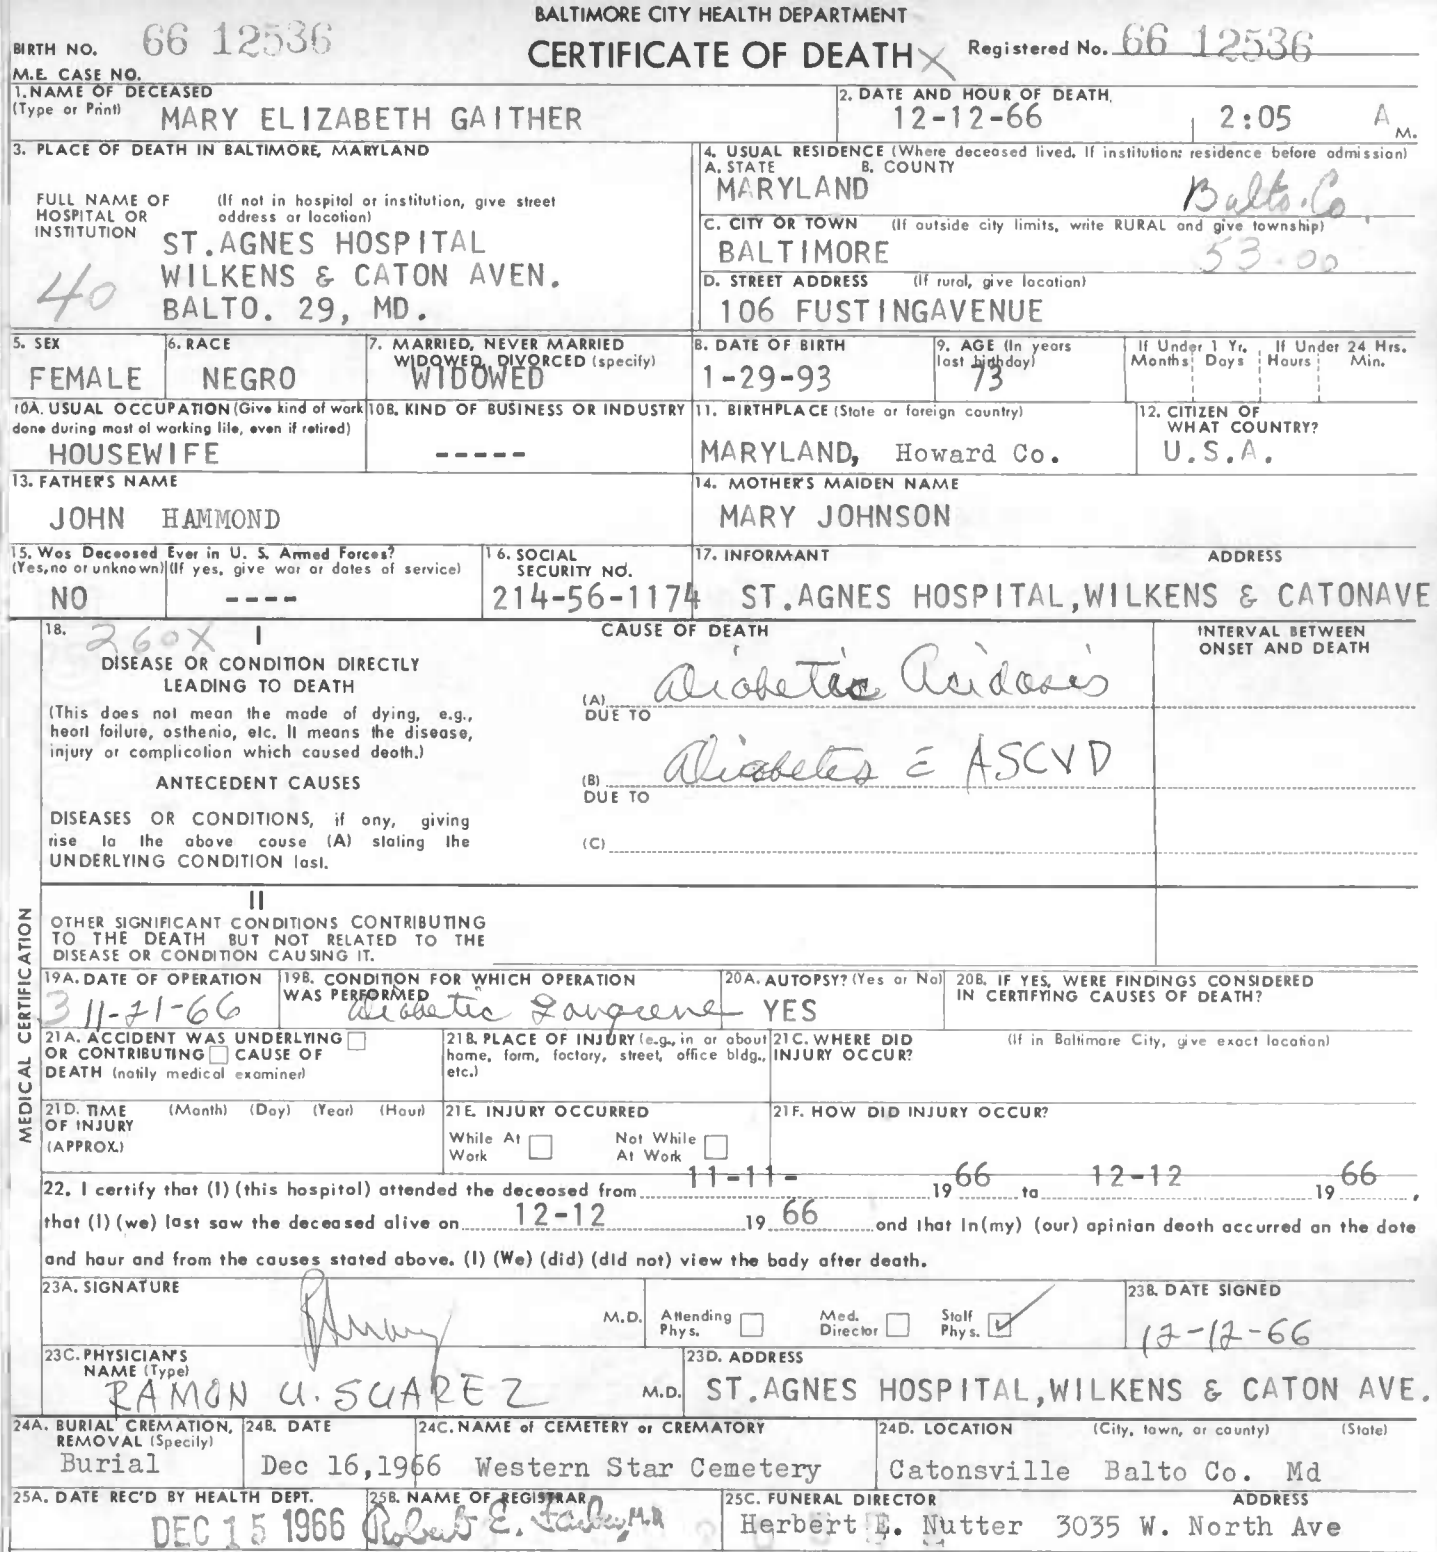 BALTIMORE CITY HEALTH DEPARTMENT
BIRTH NO. 66 12536 CERTIFICATE OF DEATH X Registered No. 66 12536
M.E. CASE NO.
1. NAME OF DECEASED (Type or Print) MARY ELIZABETH GAITHER
2. DATE AND HOUR OF DEATH 12-12-66 2:05 A M.
3. PLACE OF DEATH IN BALTIMORE, MARYLAND
FULL NAME OF HOSPITAL OR INSTITUTION (If not in hospital or institution, give street address or location)
ST.AGNES HOSPITAL
WILKENS & CATON AVEN.
BALTO. 29, MD.
40
4. USUAL RESIDENCE (Where deceased lived. If institution: residence before admission)
A. STATE B. COUNTY
MARYLAND Balto. Co.
C. CITY OR TOWN (If outside city limits, write RURAL and give township)
BALTIMORE 53.00
D. STREET ADDRESS (If rural, give location)
106 FUSTINGAVENUE
5. SEX FEMALE
6. RACE NEGRO
7. MARRIED, NEVER MARRIED WIDOWED, DIVORCED (specify) WIDOWED
8. DATE OF BIRTH 1-29-93
9. AGE (In years last birthday) 73
If Under 1 Yr. Months Days
If Under 24 Hrs. Hours Min.
10A. USUAL OCCUPATION (Give kind of work done during most of working life, even if retired) HOUSEWIFE
10B. KIND OF BUSINESS OR INDUSTRY -----
11. BIRTHPLACE (State or foreign country) MARYLAND, Howard Co.
12. CITIZEN OF WHAT COUNTRY? U.S.A.
13. FATHER'S NAME JOHN HAMMOND
14. MOTHER'S MAIDEN NAME MARY JOHNSON
15. Was Deceased Ever in U. S. Armed Forces? (Yes, no or unknown) (If yes, give war or dates of service) NO ----
16. SOCIAL SECURITY NO. 214-56-1174
17. INFORMANT ADDRESS
ST.AGNES HOSPITAL,WILKENS & CATONAVE
MEDICAL CERTIFICATION
18. 260X I
DISEASE OR CONDITION DIRECTLY LEADING TO DEATH
(This does not mean the mode of dying, e.g., heart failure, asthenia, etc. It means the disease, injury or complication which caused death.)
ANTECEDENT CAUSES
DISEASES OR CONDITIONS, if any, giving rise to the above cause (A) stating the UNDERLYING CONDITION last.
CAUSE OF DEATH
(A) Diabetic Acidosis
DUE TO
(B) Diabetes c̄ ASCVD
DUE TO
(C)
INTERVAL BETWEEN ONSET AND DEATH
II
OTHER SIGNIFICANT CONDITIONS CONTRIBUTING TO THE DEATH BUT NOT RELATED TO THE DISEASE OR CONDITION CAUSING IT.
19A. DATE OF OPERATION 3 11-21-66
19B. CONDITION FOR WHICH OPERATION WAS PERFORMED Diabetic Gangrene
20A. AUTOPSY? (Yes or No) YES
20B. IF YES, WERE FINDINGS CONSIDERED IN CERTIFYING CAUSES OF DEATH?
21A. ACCIDENT WAS UNDERLYING OR CONTRIBUTING CAUSE OF DEATH (notify medical examiner)
21B. PLACE OF INJURY (e.g., in or about home, farm, factory, street, office bldg., etc.)
21C. WHERE DID INJURY OCCUR? (If in Baltimore City, give exact location)
21D. TIME OF INJURY (APPROX.) (Month) (Day) (Year) (Hour)
21E. INJURY OCCURRED
While At Work Not While At Work
21F. HOW DID INJURY OCCUR?
22. I certify that (I) (this hospital) attended the deceased from 11-11- 19 66 to 12-12 19 66,
that (I) (we) last saw the deceased alive on 12-12 19 66 and that in (my) (our) opinion death occurred on the date
and hour and from the causes stated above. (I) (We) (did) (did not) view the body after death.
23A. SIGNATURE M.D.
Attending Phys. Med. Director Staff Phys. ✓
23B. DATE SIGNED 12-12-66
23C. PHYSICIAN'S NAME (Type) RAMON U. SUAREZ M.D.
23D. ADDRESS ST.AGNES HOSPITAL,WILKENS & CATON AVE.
24A. BURIAL CREMATION, REMOVAL (Specify) Burial
24B. DATE Dec 16,1966
24C. NAME of CEMETERY or CREMATORY Western Star Cemetery
24D. LOCATION (City, town, or county) (State)
Catonsville Balto Co. Md
25A. DATE REC'D BY HEALTH DEPT. DEC 15 1966
25B. NAME OF REGISTRAR Robert E. Farber, M.D.
25C. FUNERAL DIRECTOR ADDRESS
Herbert E. Nutter 3035 W. North Ave